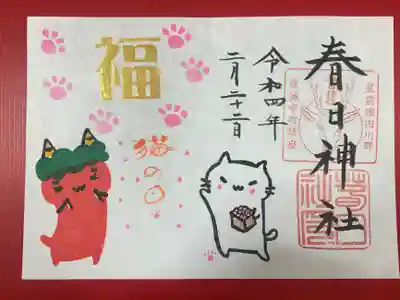 春日神社
令和四年
二月二十二日
福
猫の日
豊前国田川郡